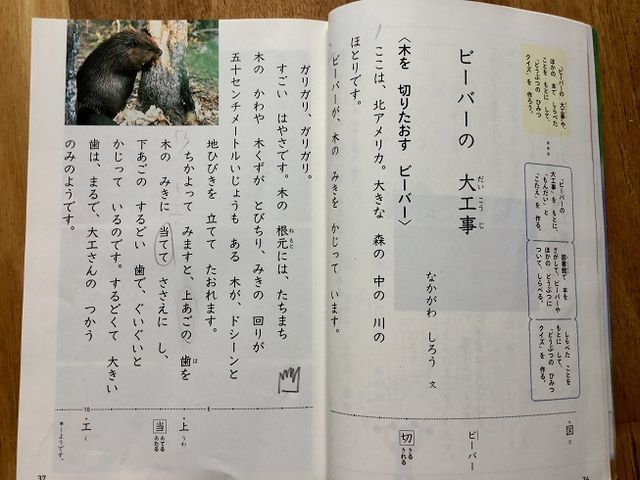 「ビーバーの 大工事」や、
ほかの 本で しらべた
ことを もとに して、
「どうぶつの ひみつ
クイズ」を 作ろう。
「ビーバーの
大工事」を もとに、
「もんだい」と
「こたえ」を 作る。
図書館で 本を
さがして、ビーバーや
ほかの どうぶつに
ついて、しらべる。
しらべた ことを
もとに して、
「どうぶつの ひみつ
クイズ」を 作る。
ビーバーの 大工事
だい こう じ
なかがわ しろう 文
〈木を 切りたおす ビーバー〉
ここは、北アメリカ。大きな 森の 中の 川の
ほとりです。
ビーバーが、木の みきを かじって います。
図 と
ビーバー
切 きる きれる
ガリガリ、ガリガリ。
すごい はやさです。木の 根元には、たちまち
ねもと
木の かわや 木くずが とびちり、みきの 回りが
五十センチメートルいじょうも ある 木が、ドシーンと
地ひびきを 立てて たおれます。
ちかよって みますと、上あごの、歯を
は
木の みきに 当てて ささえに し、
下あごの するどい 歯で、ぐいぐいと
かじって いるのです。するどくて 大きい
歯は、まるで、大工さんの つかう
のみのようです。
5
10
上 うわ
当 あてる あたる
工 く
37